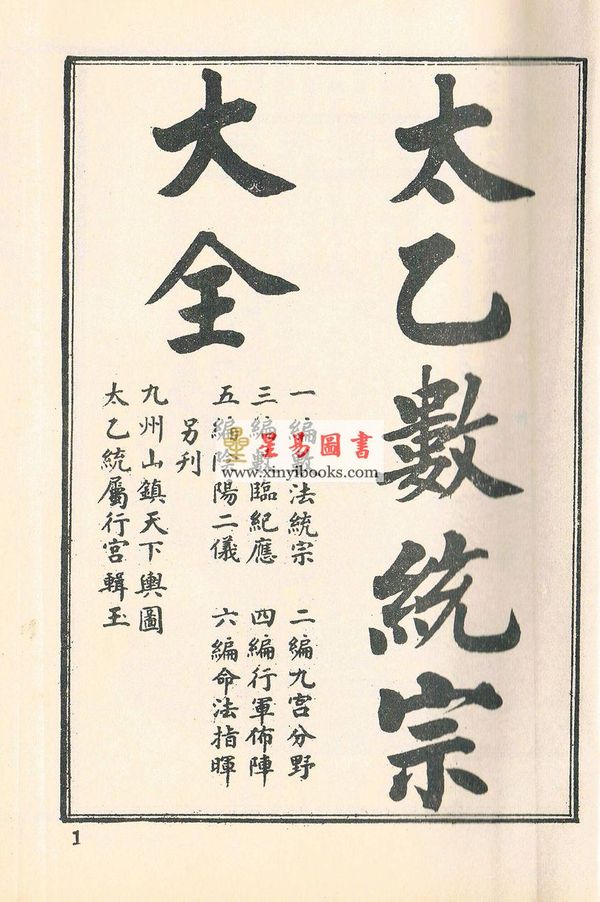 太乙數統宗
大全
一編數法統宗 二編九宮分野
三編數臨紀應 四編行軍佈陣
五編陰陽二儀 六編命法指暉
另刊
九州山鎮天下輿圖
太乙統屬行宮輯玉
星易圖書
www.xinyibooks.com
1